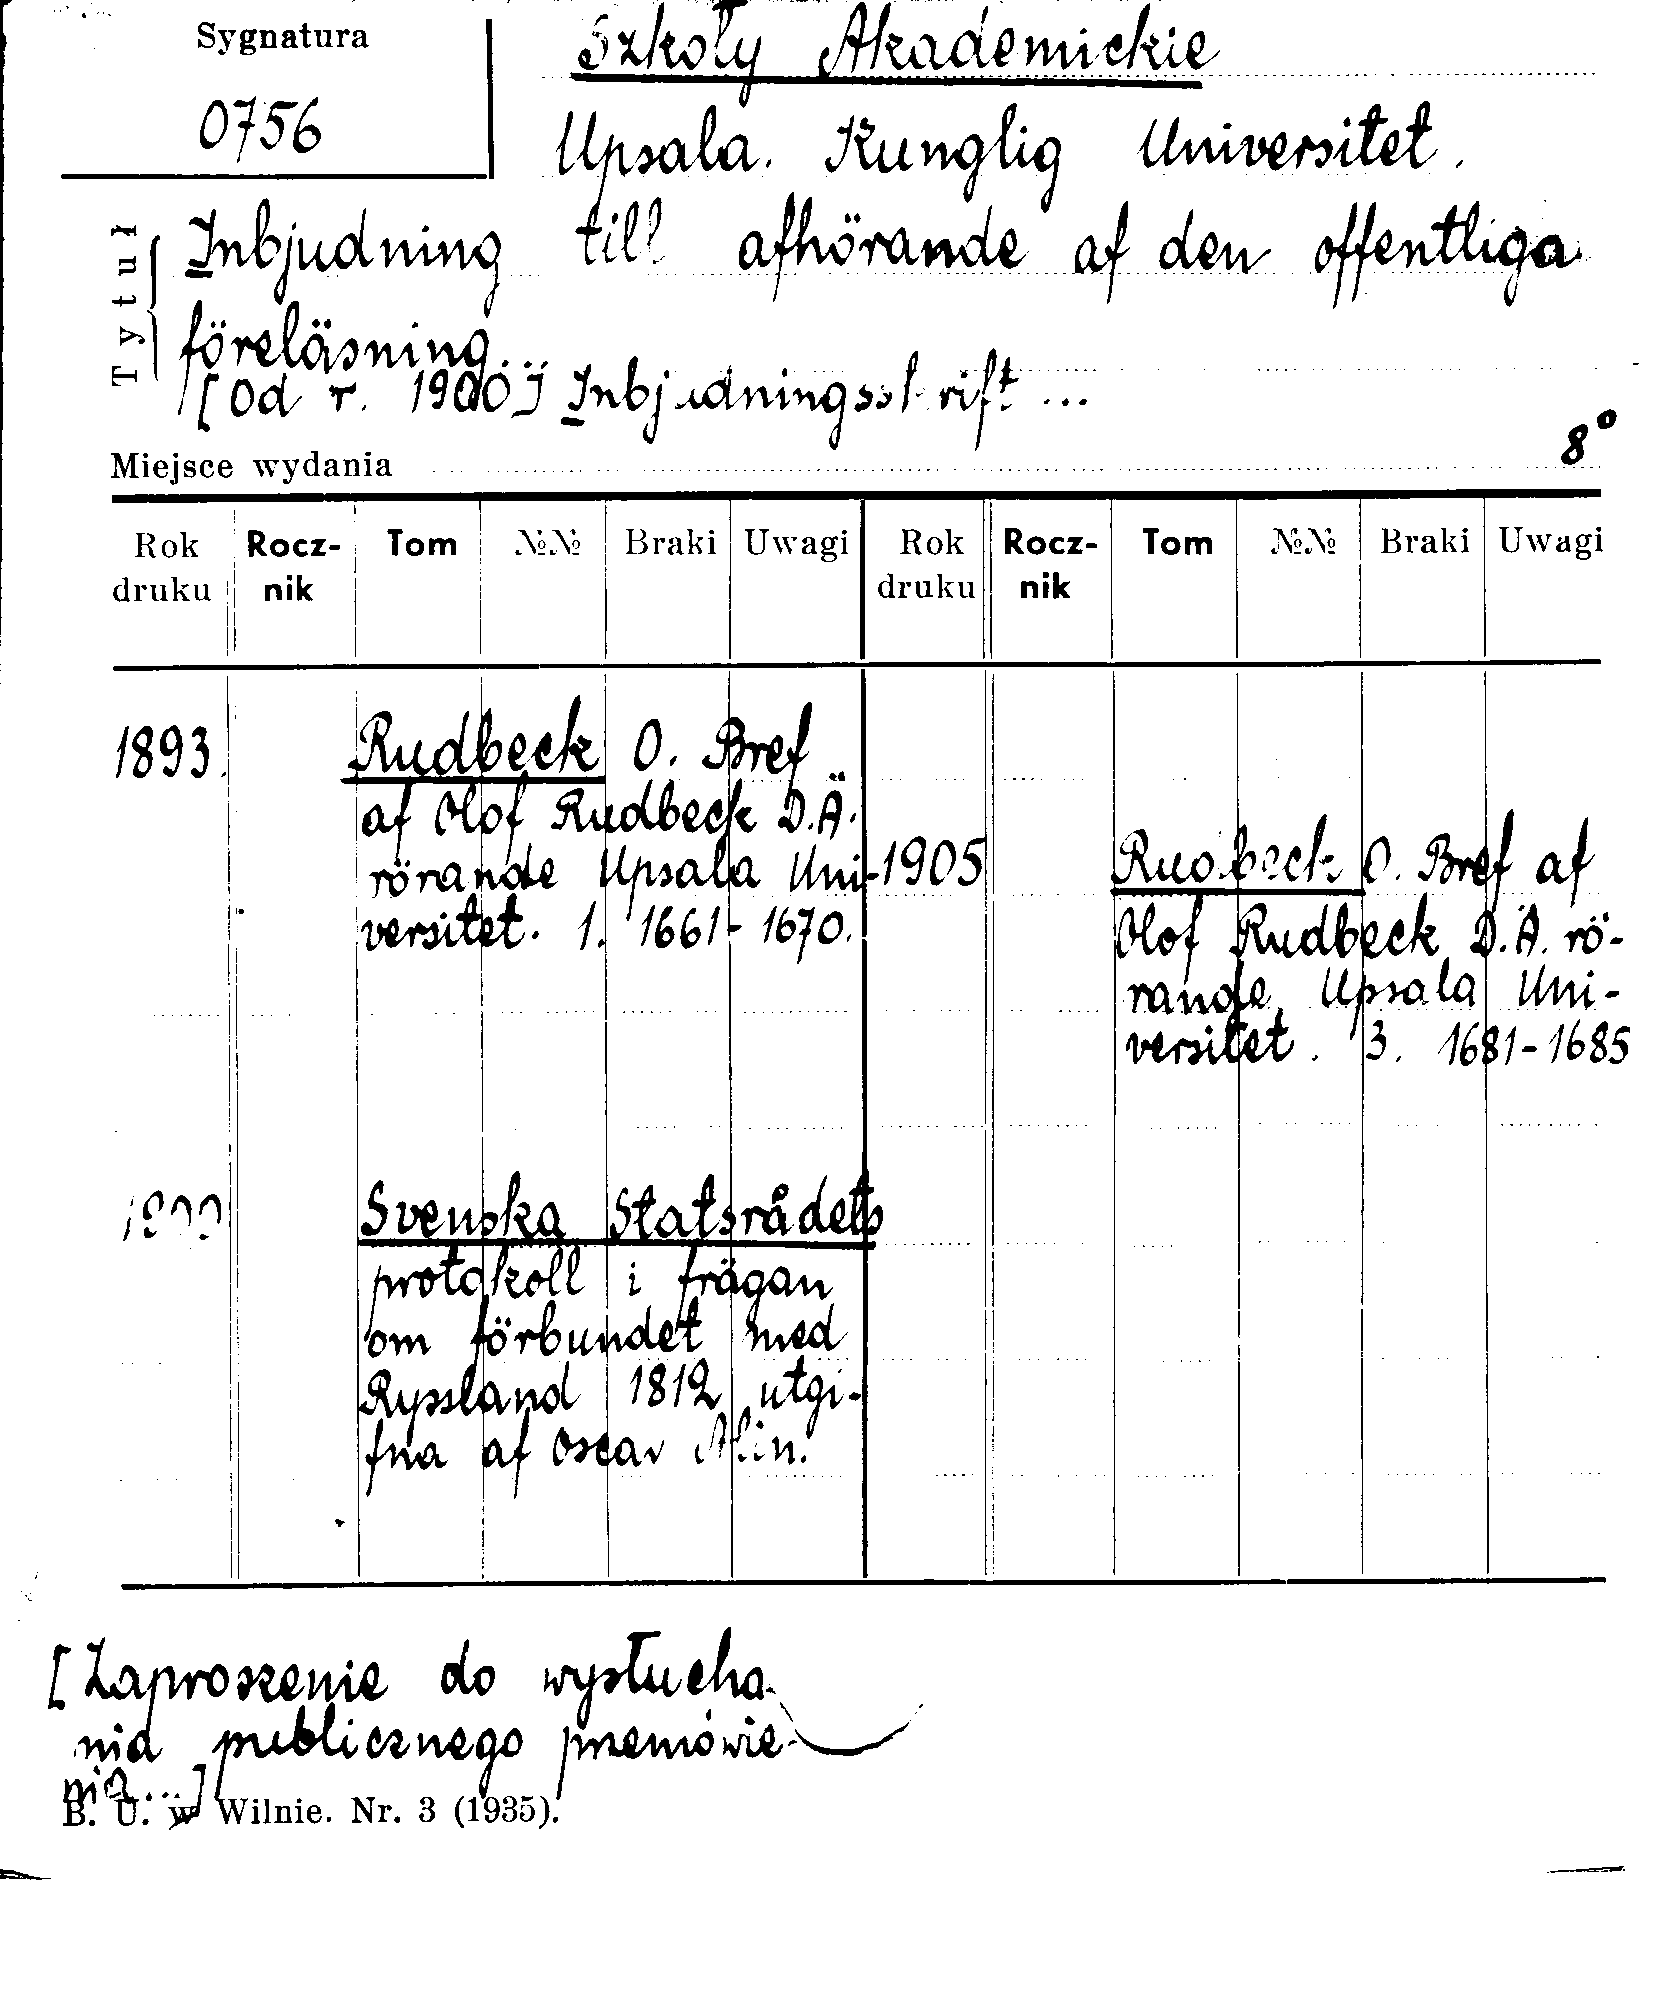 Sygnatura
0756
Szkoły Akademickie
Upsala. Kunglig Universitet.
Tytuł
Inbjudning till afhörande af den offentliga
föreläsning...
[Od r. 1900] Inbjudningsskrift...
Miejsce wydania
8°
Rok druku Rocznik Tom №№ Braki Uwagi Rok druku Rocznik Tom №№ Braki Uwagi
1893.
Rudbeck O. Bref
af Olof Rudbeck D.Ä.
rörande Upsala Uni-
versitet. 1. 1661-1670.
Svenska Statsrådets
protokoll i frägan
om förbundet med
Ryssland 1812 utgi-
fna af Oscar Alin.
1905
Rudbeck O. Bref af
Olof Rudbeck D.Ä. rö-
rande Upsala Uni-
versitet. 3. 1681-1685
[Zaproszenie do wysłucha-
nia publicznego przemówie-
nia...]
B. U. w Wilnie. Nr. 3 (1935).